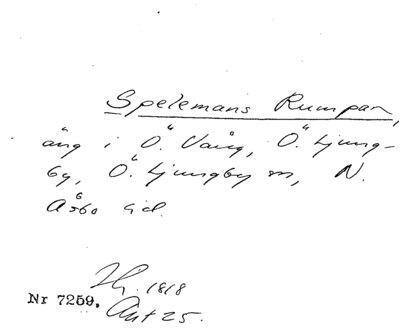 Spelemans Rumpan,
äng i Ö. Vång, Ö. Ljung-
by, Ö. Ljungby sn, N.
Åsbo hd.
1818
Nr 7259. Akt 25.